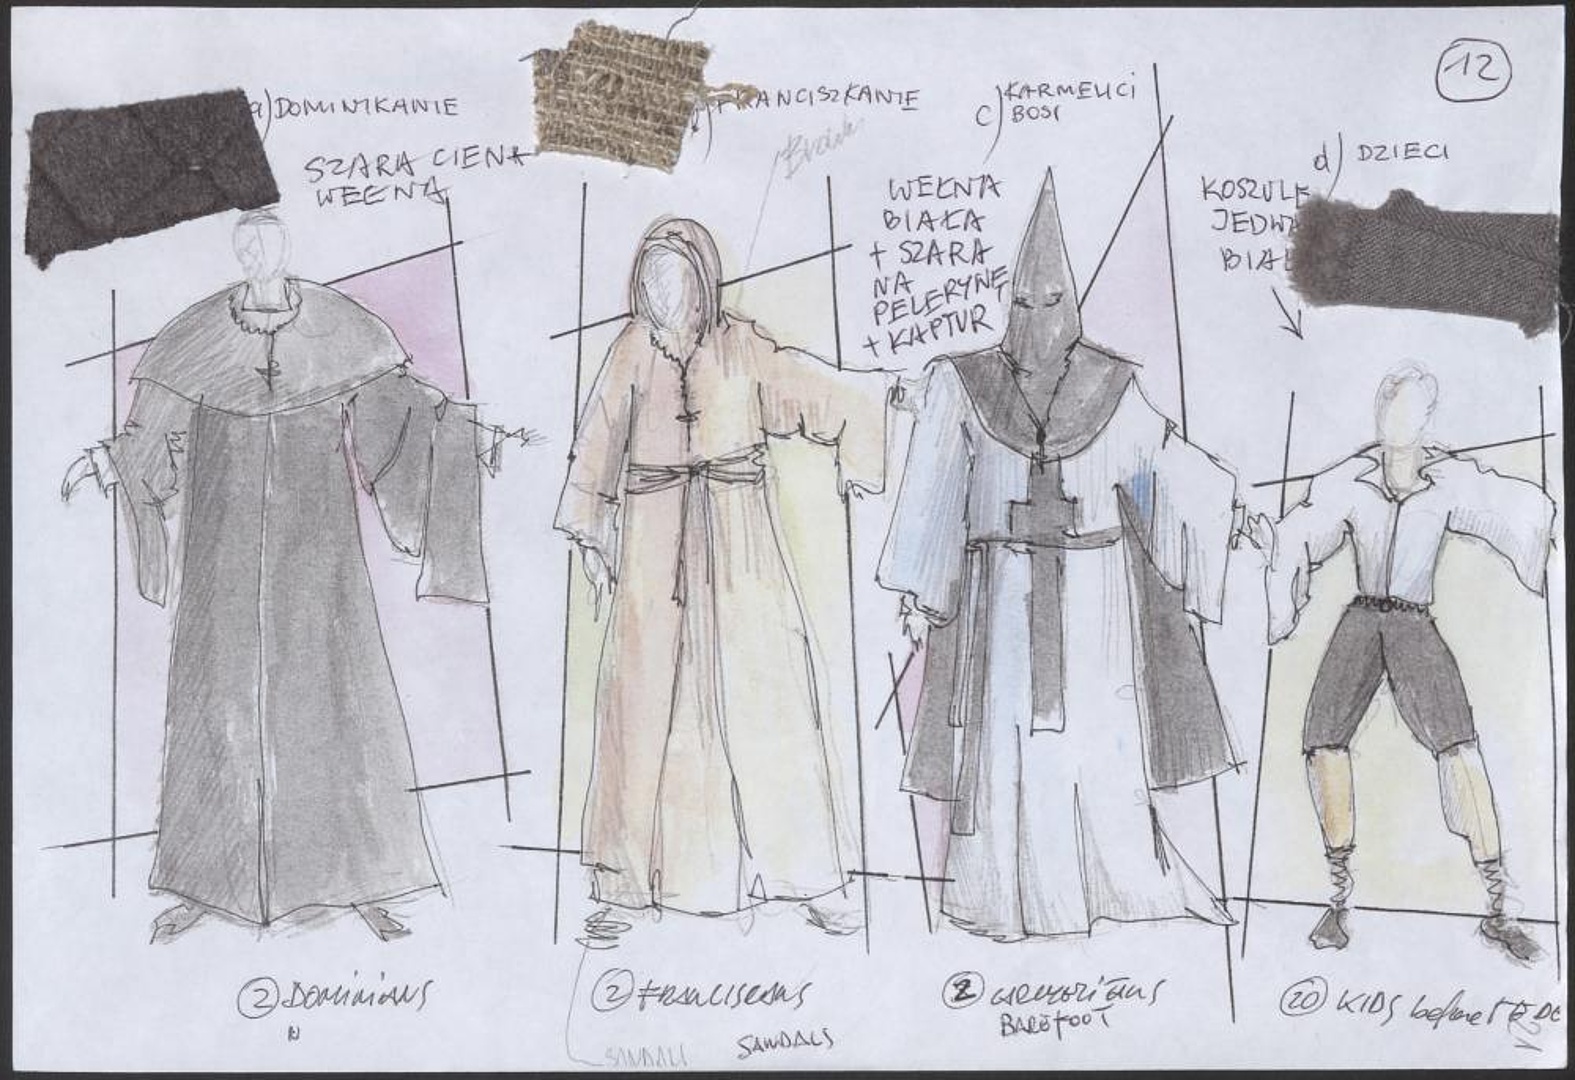 12
a) DOMINIKANIE
SZARA CIENKA
WEŁNA
FRANCISZKANIE
c) KARMELICI
BOSI
WEŁNA
BIAŁA
+ SZARA
NA
PELERYNĘ
+ KAPTUR
d) DZIECI
KOSZULE
JEDW
BIA
2 DOMINIANS
N
2 FRANCISCANS
SANDALI
SANDALS
2
BAREFOOT
20 KIDS before